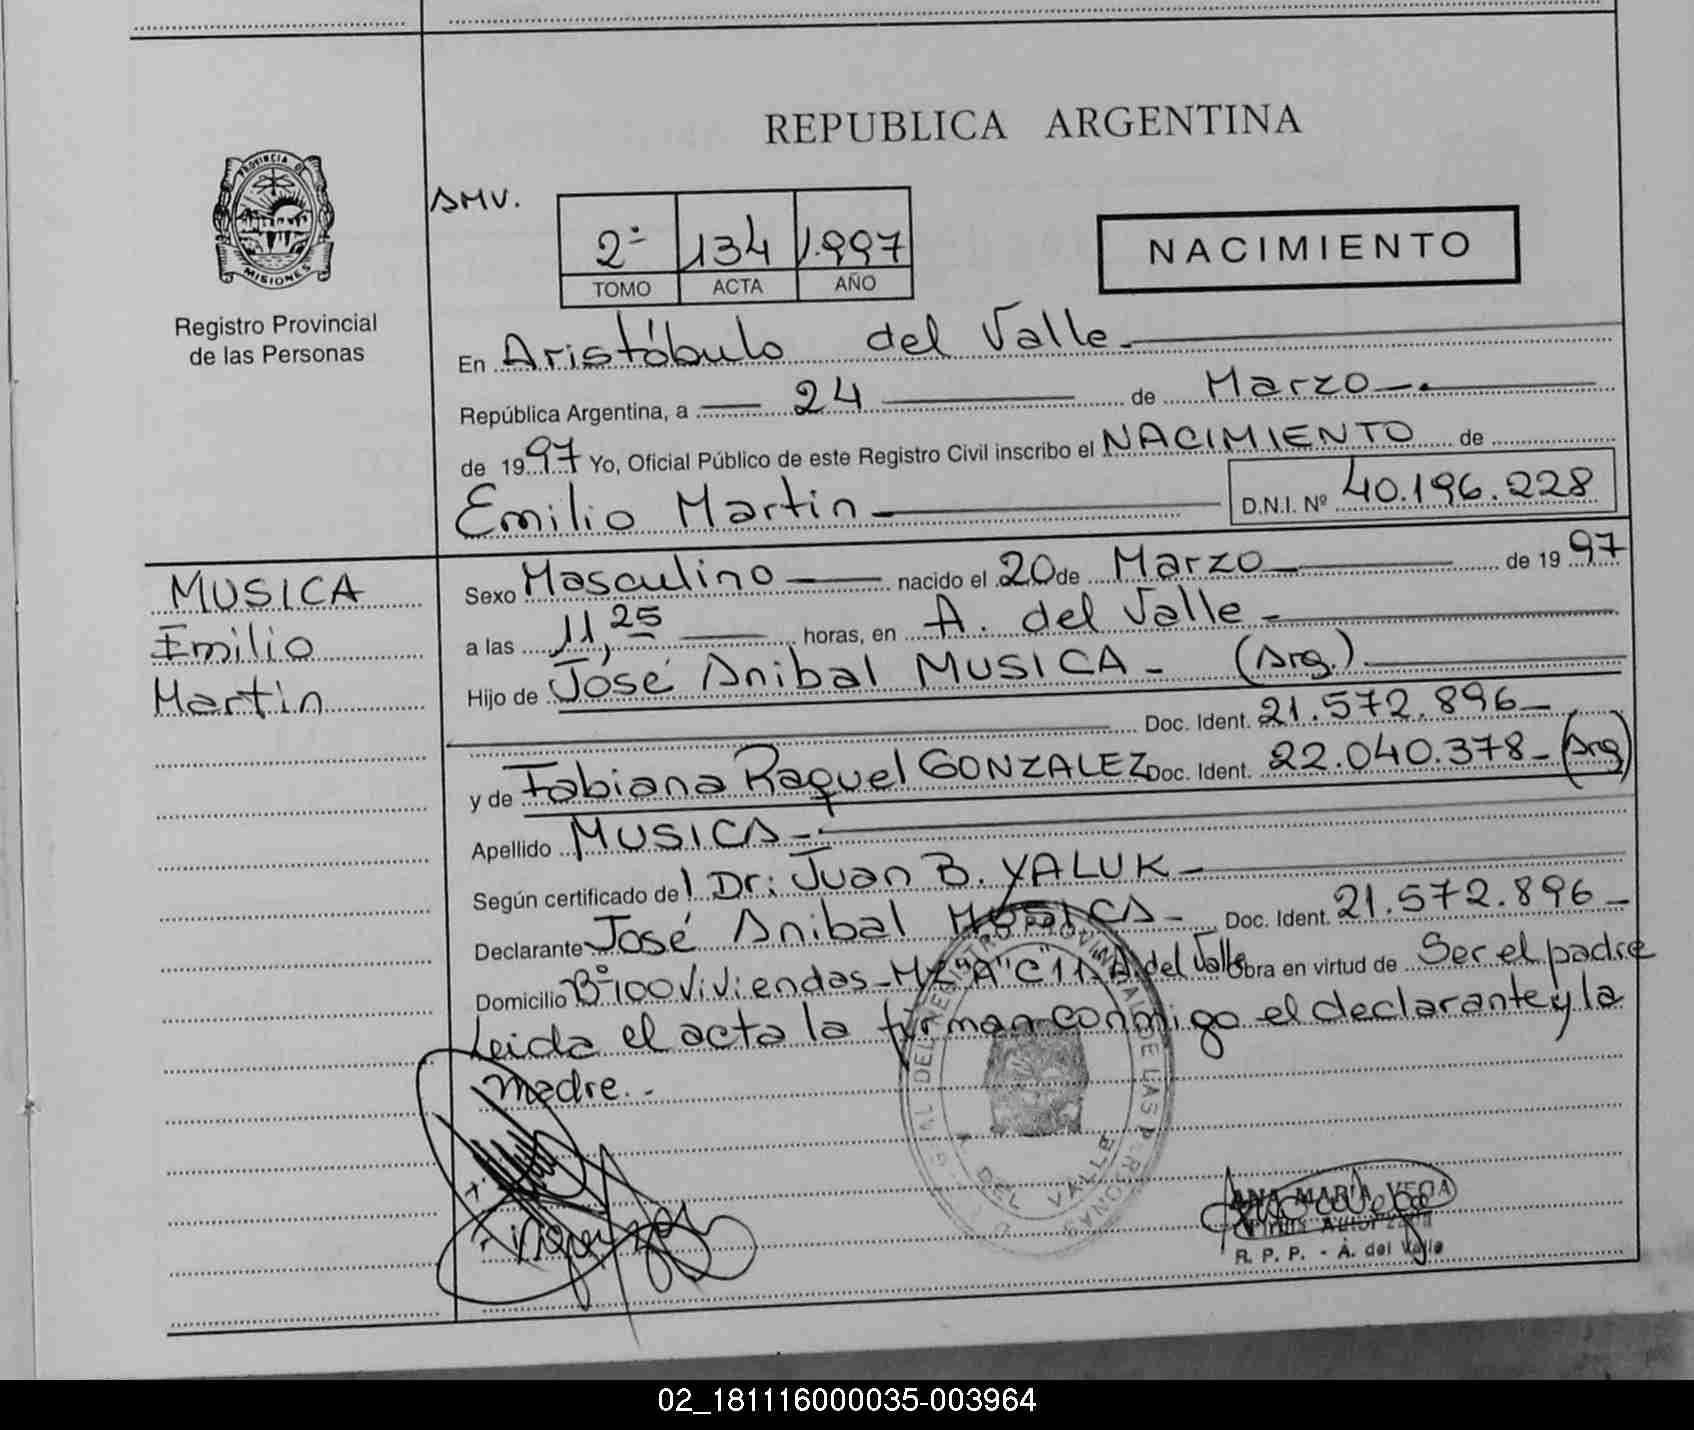 REPUBLICA ARGENTINA
PROVINCIA DE
MISIONES
Registro Provincial
de las Personas
AMV.
2º 134 1.997
TOMO ACTA AÑO
NACIMIENTO
En Aristóbulo del Valle.
República Argentina, a 24 de Marzo
de 1997 Yo, Oficial Público de este Registro Civil inscribo el NACIMIENTO de
Emilio Martin D.N.I. Nº 40.196.228
MUSICA
Emilio
Martin
Sexo Masculino nacido el 20 de Marzo de 1997
a las 11,25 horas, en A. del Valle
Hijo de José Anibal MUSICA - (Arg.)
Doc. Ident. 21.572.896
y de Fabiana Raquel GONZALEZ Doc. Ident. 22.040.378 - (Arg)
Apellido MUSICA
Según certificado del Dr: Juan B. YALUK
Declarante José Anibal MUSICA Doc. Ident. 21.572.896
Domicilio Bº 100 Viviendas - Mz "A" C 11 - A. del Valle Obra en virtud de Ser el padre
Leida el acta la firman conmigo el declarante y la
madre. -
DEL REGISTRO PROVINCIAL DE LAS PERSONAS
DEL VALLE
ANA MARIA VEGA
R. P. P. - A. del Valle
02_181116000035-003964